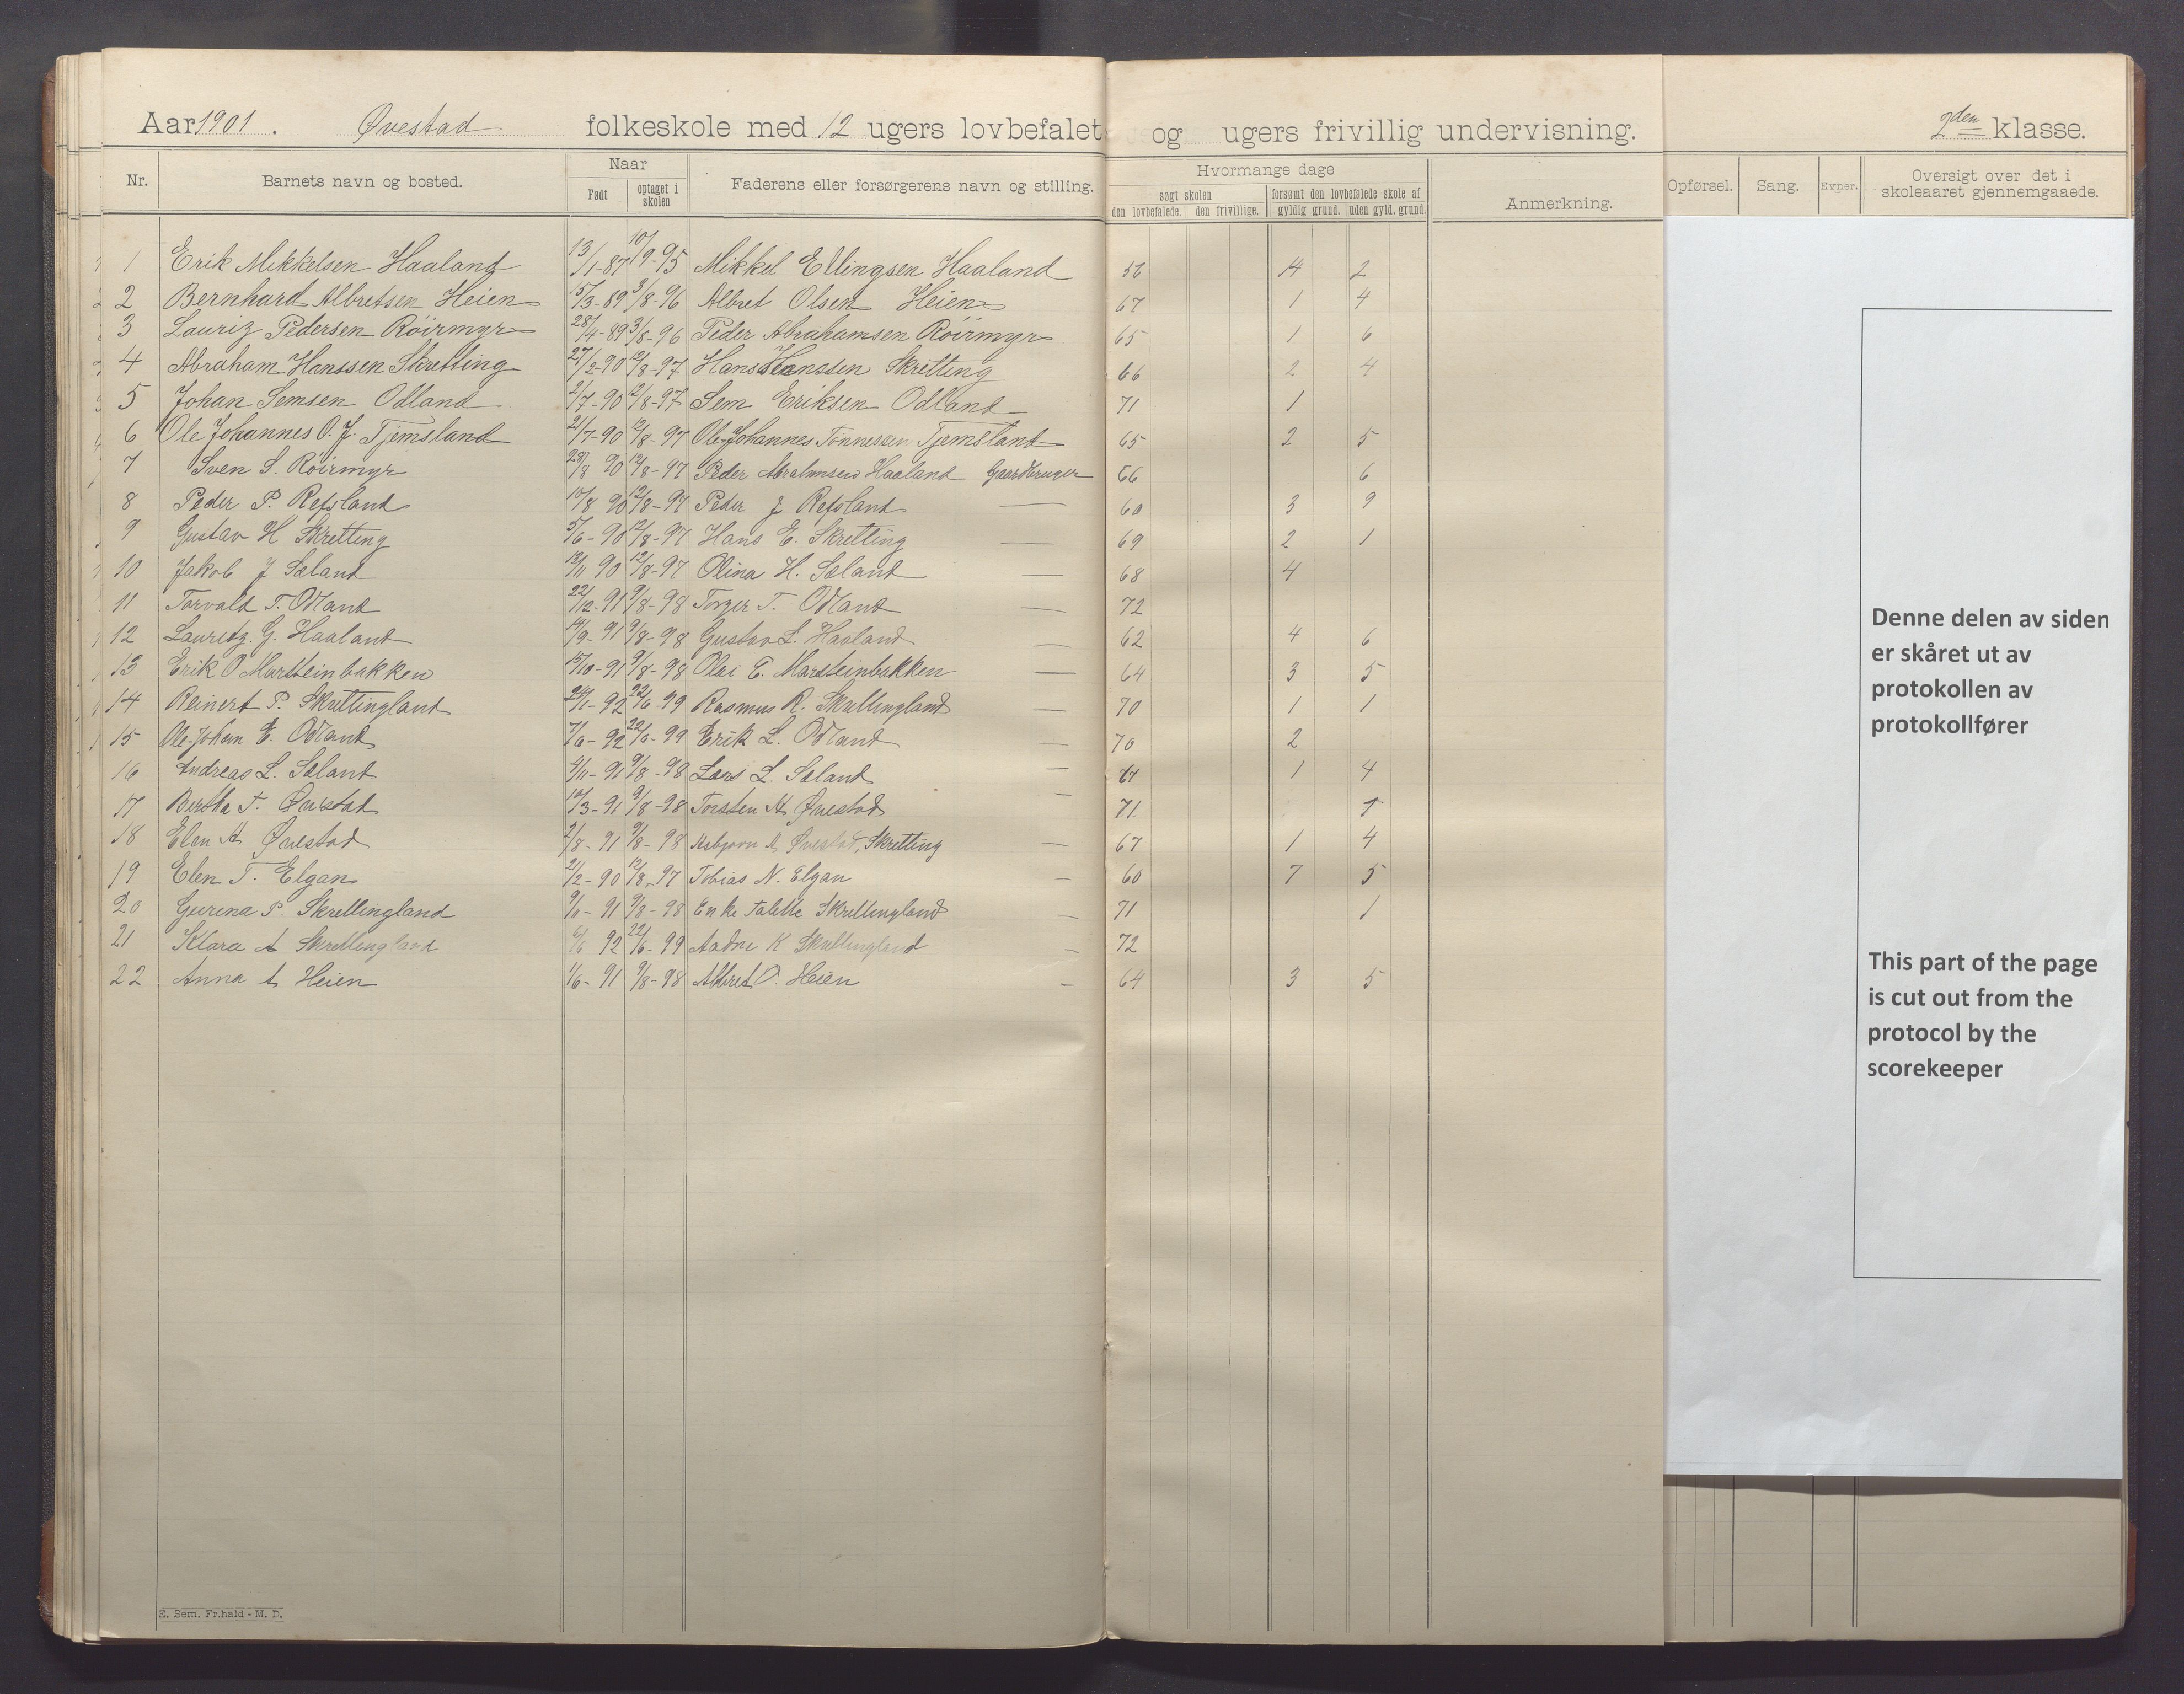 Aar 1901. Øvestad folkeskole med 12 ugers lovbefalet og ugers frivillig undervisning. 2den klasse.
Nr. Barnets navn og bosted. Naar Født optaget i skolen Faderens eller forsørgerens navn og stilling. Hvormange dage søgt skolen den lovbefalede. den frivillige. forsømt den lovbefalede skole af gyldig grund. uden gyld. grund. Anmerkning. Opførsel. Sang. Evner. Oversigt over det i skoleaaret gjennemgaaede.
1 Erik Mikkelsen Haaland 13/1-87 10/9-95 Mikkel Ellingsen Haaland 56 14 2
2 Bernhard Albretsen Heien 15/3-89 3/8-96 Albret Olsen Heien 67 1 4
3 Lauriz Pedersen Röirmyr 28/4-89 3/8-96 Peder Abrahamsen Röirmyr 65 1 6
4 Abraham Hanssen Skretting 27/2-90 12/8-97 Hans Hanssen Skretting 66 2 4
5 Johan Semsen Odland 2/7-90 12/8-97 Sem Eriksen Odland 71 1
6 Ole Johannes O. J. Tjemsland 21/7-90 12/8-97 Ole Johannes Tonnessen Tjemsland 65 2 5
7 Sven S. Röirmyr 28/8 90 12/8-97 Peder Haaland Gaardbruger 66 6
8 Peder P. Refsland 10/8 90 12/8-97 Peder J Refsland — 60 3 9
9 Gustav H Skretting 5/6-90 12/8-97 Hans E. Skretting — 69 2 1
10 Jakob J Sæland 18/11 90 12/8-97 Olina H. Sæland — 68 4
11 Torvald T. Odland 22/12-91 9/8-98 Torger T. Odland — 72
12 Lauretz. G. Haaland 14/9-91 9/8-98 Gustav L. Haaland — 62 4 6
13 Erik O Marsteinbakken 15/10-91 9/8-98 Olai E. Marsteinbakken — 64 3 5
14 Reinert P. Skrettingland 24/1-92 22/6-99 Rasmus R. Skrettingland — 70 1 1
15 Ole-Johan E. Odland 7/6-92 22/6-99 Erik L. Odland — 70 2
16 Andreas L. Sæland 4/11-91 9/8-98 Lars L. Sæland — 67 1 4
17 Bertha T. Øvestad 10/3-91 9/8-98 Torsten A Øvestad — 71. 1
18 Elen A Øvestad 2/8-91 9/8-98 Asbjørn A Øvestad, Skretting — 67 1 4
19 Elen T. Elgan 21/2-90 12/8-97 Tobias N. Elgan — 60 7 5
20 Gurina P. Skrettingland 91 9/8-98 Enke Talette Skrettingland — 71 1
21 Klara A Skrettingland 6/6 92 22/6-99 Aadne K Skrettingland — 72
22 Anna A Heien 1/6-91 9/8-98 Albret O. Heien — 64 3 5
Denne delen av siden
er skåret ut av
protokollen av
protokollfører
This part of the page
is cut out from the
protocol by the
scorekeeper
E. Sem, Fr.hald - M. D.